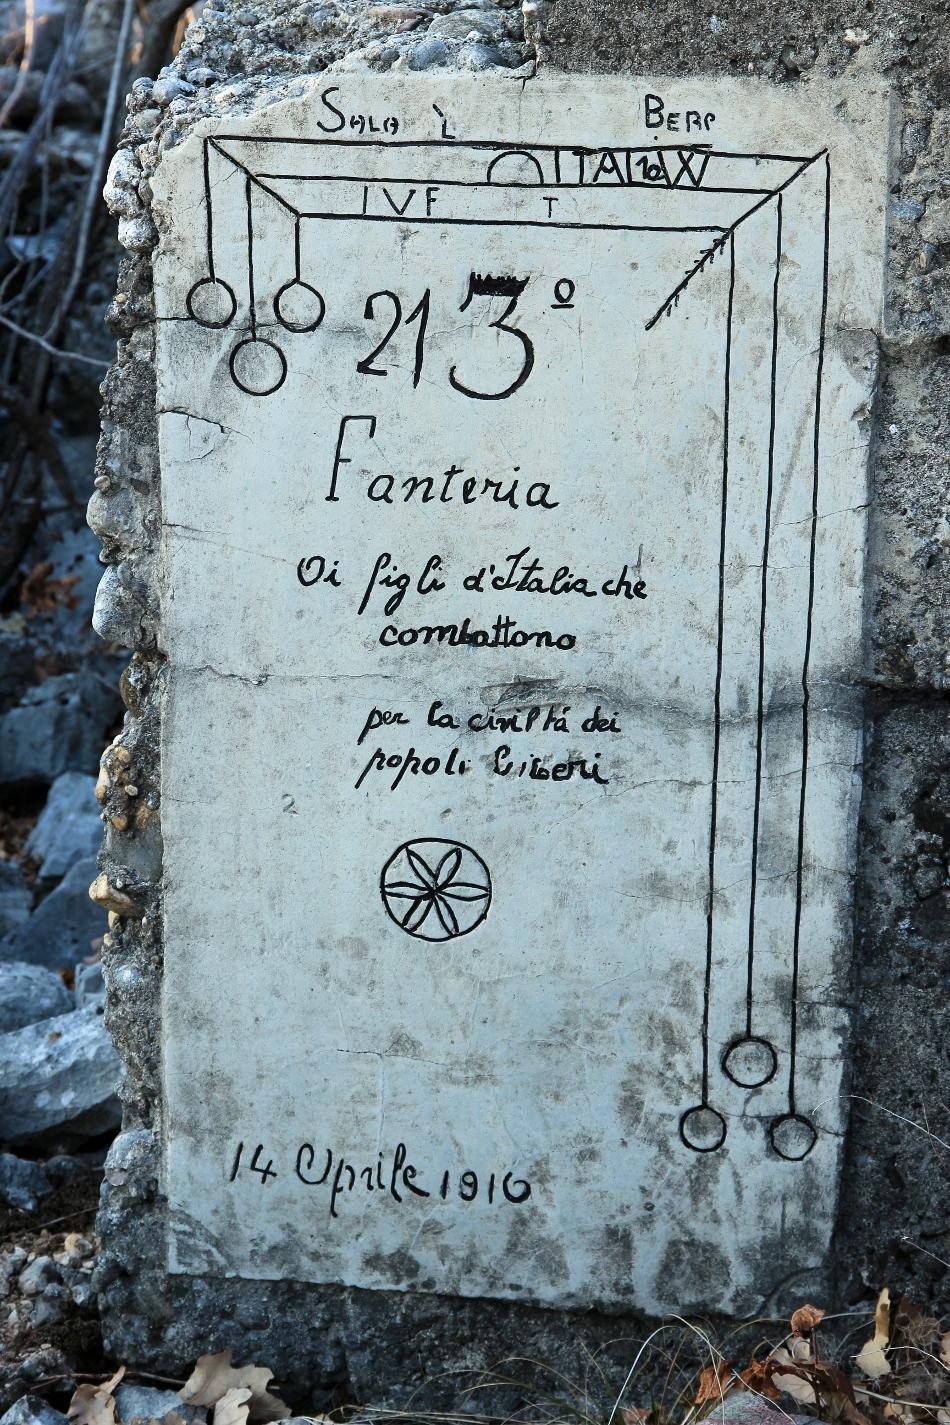 SALA L BERP
ITALIA W
IVF T
213º
Fanteria
Oi figli d'Italia che
combattono
per la civiltá dei
popoli liberi
14 Aprile 1916